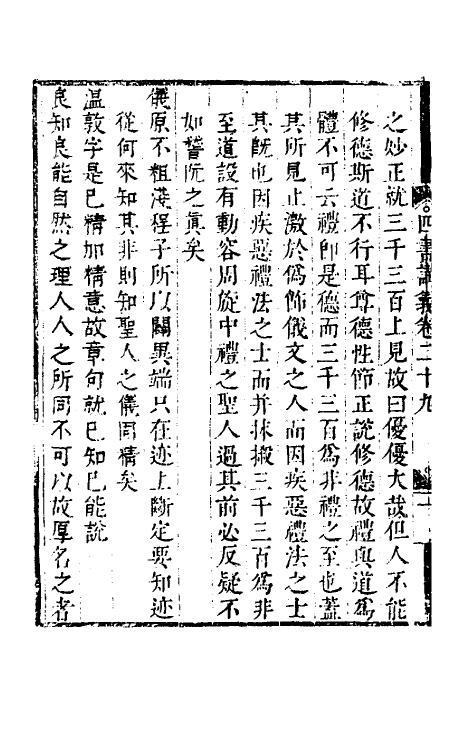 四書講義卷二十九
之妙正就三千三百上見故曰優優大哉但人不能
修德斯道不行耳尊德性節正說修德故禮與道為
體不可云禮卽是德而三千三百為非禮之至也蓋
其所見止激於偽飾儀文之人而因疾惡禮法之士
其旣也因疾惡禮法之士而并抹摋三千三百為非
至道設有動容周旋中禮之聖人過其前必反疑不
如嵇阮之眞矣
儀原不粗淺程子所以闢異端只在迹上斷定要知迹
從何來知其非則知聖人之儀同精矣
温敦字是已精加精意故章句就已知已能說
良知良能自然之理人人之所同不可以故厚名之者